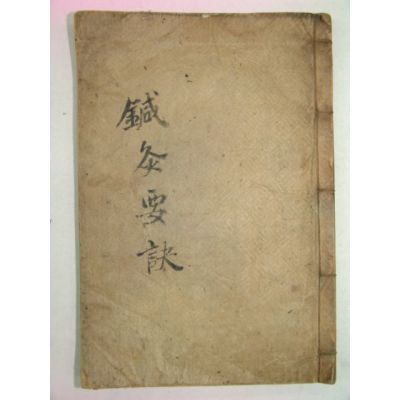 鍼灸要訣